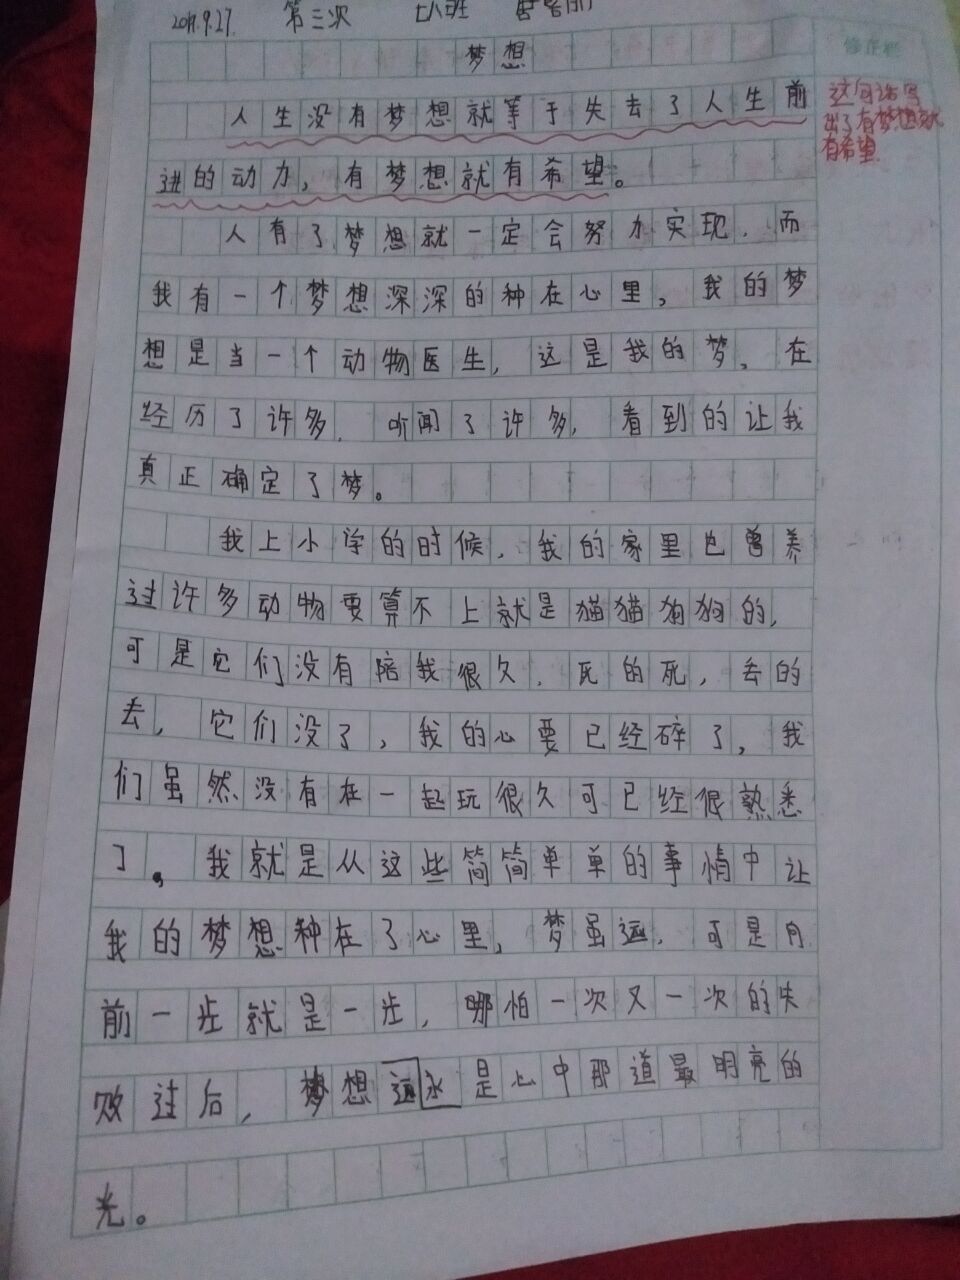 2017.9.27 第三次 七八班
梦想
修正栏
人生没有梦想就等于失去了人生前
进的动力，有梦想就有希望。
这句话写
出了有梦想就
有希望
人有了梦想就一定会努力实现，而
我有一个梦想深深的种在心里，我的梦
想是当一个动物医生，这是我的梦，在
经历了许多，听闻了许多，看到的让我
真正确定了梦。
我上小学的时候，我的家里也曾养
过许多动物要算不上就是猫猫狗狗的，
可是它们没有陪我很久，死的死，去的
去，它们没了，我的心要已经碎了，我
们虽然没有在一起玩很久可已经很熟悉
了。我就是从这些简简单单的事情中让
我的梦想种在了心里，梦虽远，可是向
前一步就是一步，哪怕一次又一次的失
败过后，梦想远永是心中那道最明亮的
光。